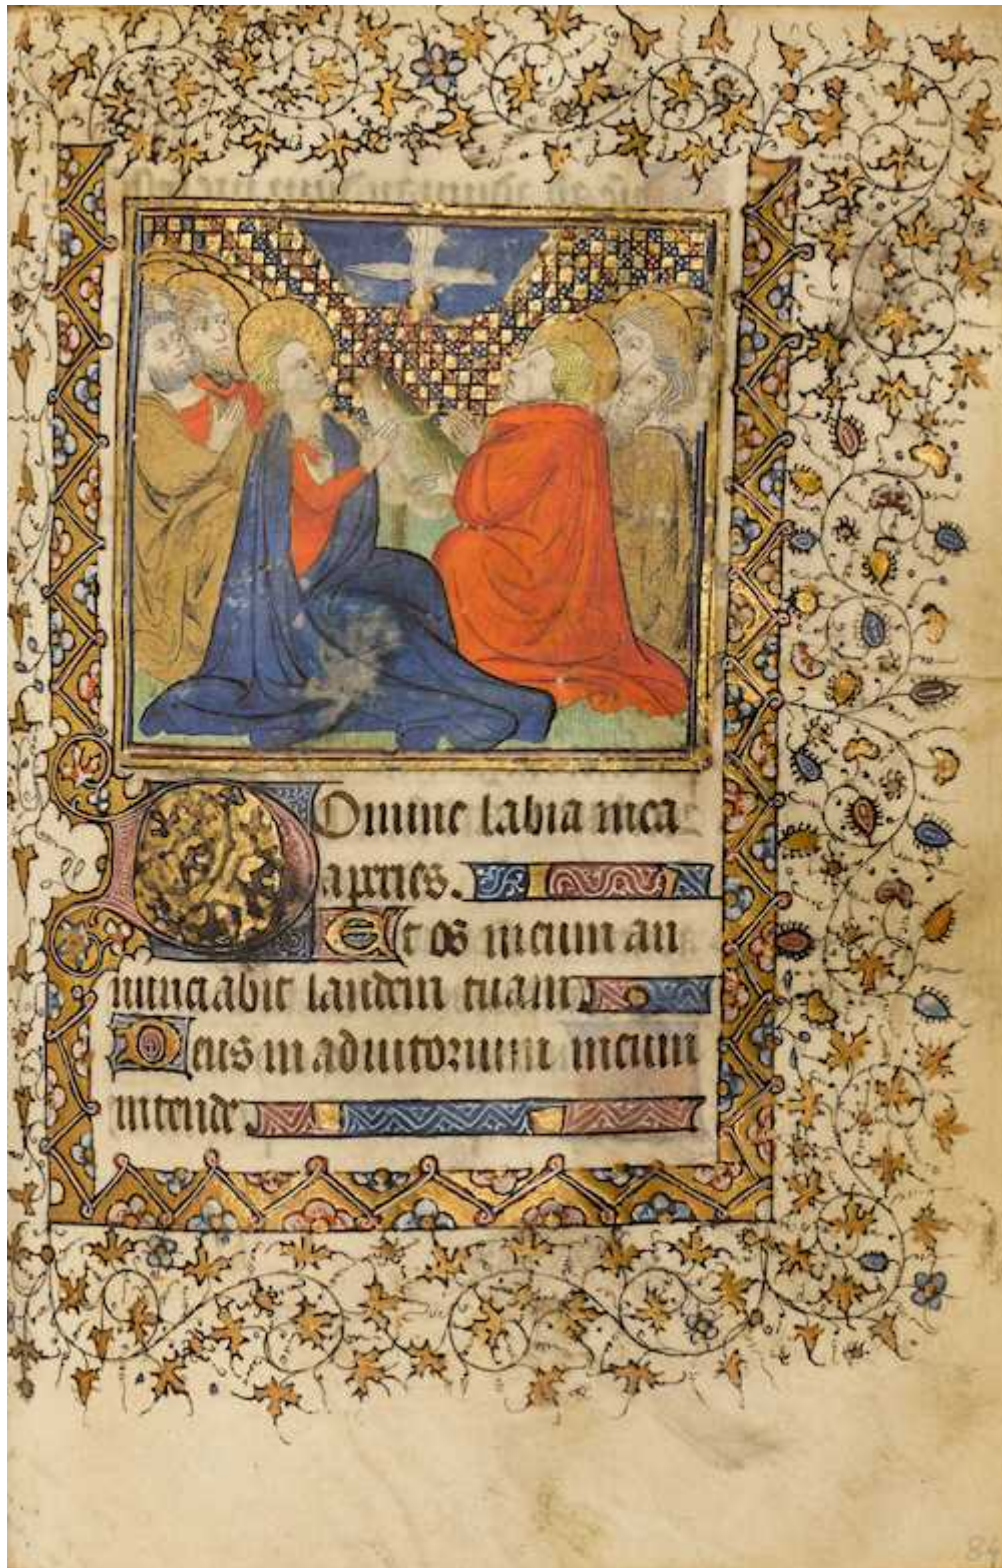 Domine labia mea
aperies.
Et os meum an
nunciabit laudem tuam
Deus in adiutorium meum
intende
84